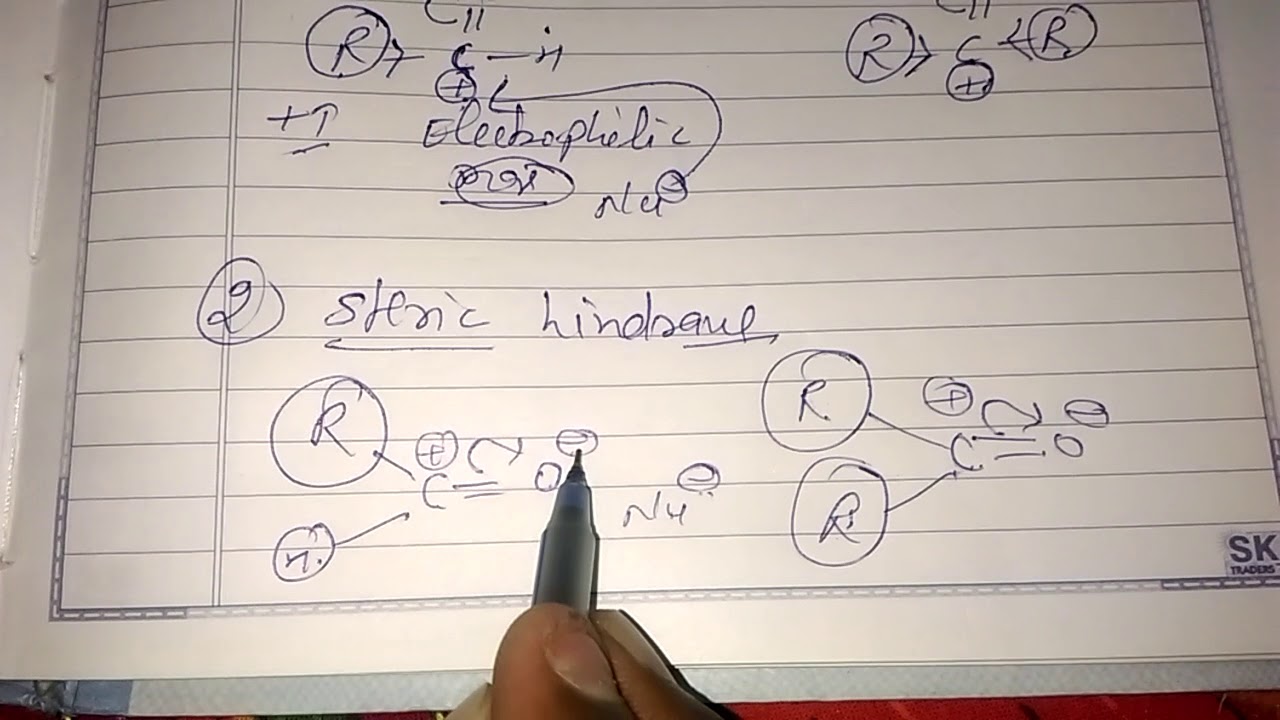 C
R > C — H
+
+I Electrophilic
Nu⊖
C
R > C < R
+
② Steric hindrance
R
⊕ ⊖
C = O
H
Nu⊖
R
⊕ ⊖
C = O
R
SK
TRADERS